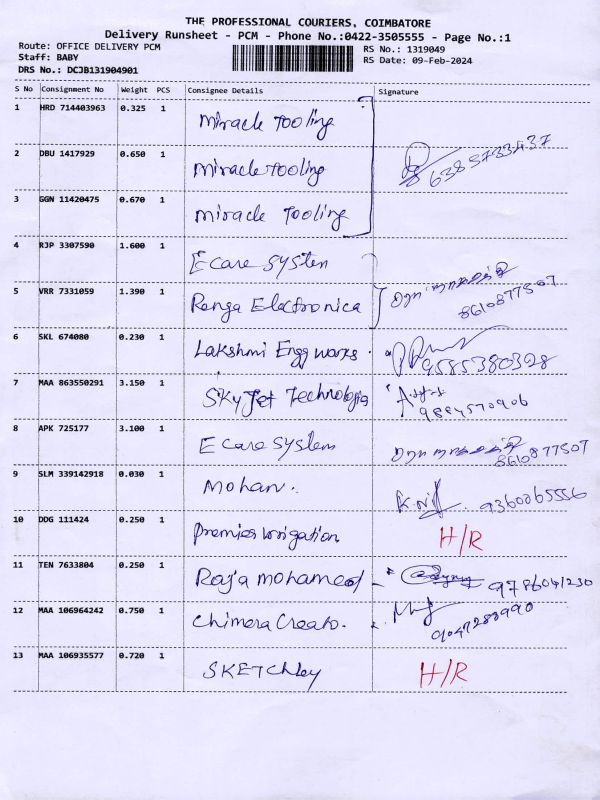 THE PROFESSIONAL COURIERS, COIMBATORE
Delivery Runsheet - PCM - Phone No.:0422-3505555 - Page No.:1
Route: OFFICE DELIVERY PCM
RS No.: 1319049
Staff: BABY
RS Date: 09-Feb-2024
DRS No.: DCJB131904901
S No Consignment No Weight PCS Consignee Details Signature
1 HRD 714403963 0.325 1 Miracle Tooling
2 DBU 1417929 0.650 1 Miracle Tooling 6385733437
3 GGN 11420475 0.670 1 Miracle Tooling
4 RJP 3307590 1.600 1 E care System
5 VRR 7331059 1.390 1 Renga Electronica 8610877507
6 SKL 674080 0.230 1 Lakshmi Engg works. 9585380328
7 MAA 863550291 3.150 1 Skyjet Technologia 9884570906
8 APK 725177 3.100 1 E care System 8610877507
9 SLM 339142918 0.030 1 Mohan. 9360065556
10 DDG 111424 0.250 1 Premier Irrigation H/R
11 TEN 7633804 0.250 1 Raja Mohamed 9786041230
12 MAA 106964242 0.750 1 Chimera Creato. 9047288990
13 MAA 106935577 0.720 1 SKETCHLey H/R